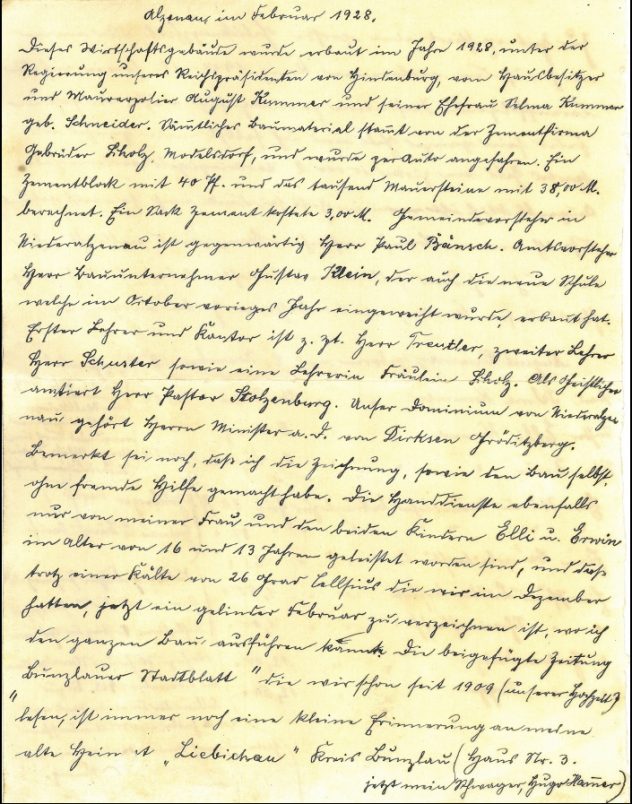 Alzenau, im Februar 1928.
Dieses Wirtschaftsgebäude wurde erbaut im Jahre 1928, unter der
Regierung unseres Reichspräsidenten von Hindenburg, vom Hausbesitzer
und Maurerpolier August Kummer und seiner Ehefrau Selma Kummer
geb. Schneider. Sämtliches Baumaterial stammt von der Zementfirma
Gebrüder Scholz, Modelsdorf, und wurde per Auto angefahren. Ein
Zementblock mit 40 Pf. und das tausend Mauersteine mit 38,00 M.
berechnet. Ein Sack Zement kostete 3,00 M. Gemeindevorsteher in
Niederalzenau ist gegenwärtig Herr Paul Bänsch. Amtsvorsteher
Herr Bauunternehmer Gustav Klein, der auch die neue Schule
welche im Oktober voriges Jahr eingeweiht wurde, erbaut hat.
Erster Lehrer und Kantor ist z. Zt. Herr Treutler, zweiter Lehrer
Herr Schuster sowie eine Lehrerin Fräulein Scholz. Als Geistlicher
amtiert Herr Pastor Stolzenburg. Unser Dominium von Niederalze
nau gehört Herrn Minister a. D. von Dirksen Gröditzberg.
Bemerkt sei noch, daß ich die Zeichnung, sowie den Bau selbst,
ohne fremde Hilfe gemacht habe. Die Handdienste ebenfalls
nur von meiner Frau und den beiden Kindern Elli u. Erwin
im Alter von 16 und 13 Jahren geleistet worden sind, und daß
trotz einer Kälte von 26 Grad Cellsius die wir im Dezember
hatten, jetzt ein gelinder Februar zu verzeichnen ist, wo ich
den ganzen Bau ausführen konnte. Die beigefügte Zeitung
"Bunzlauer Stadtblatt" die wir schon seit 1909 (unserer Hochzeit)
lesen, ist immer noch eine kleine Erinnerung an meine
alte Heimat "Liebichau" Kreis Bunzlau (Haus Nr. 3.
jetzt mein Schwager, Hugo)